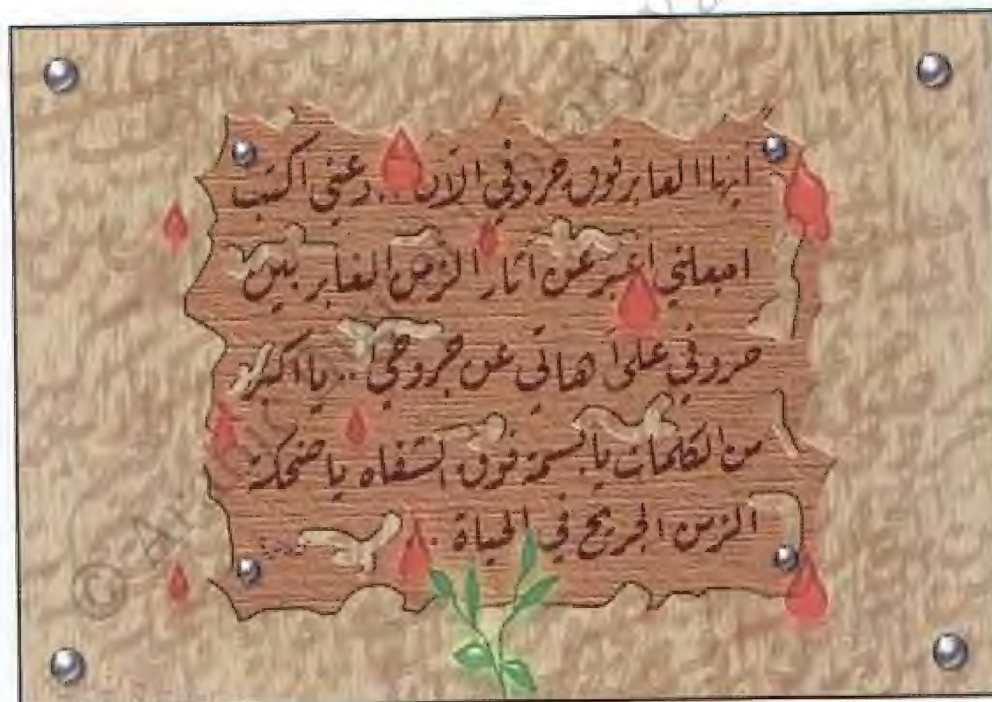 أيها العابر فوق حروفي الآن .. دعني اكتب
اجعلني اعبر عن اثار الزمن الغابر بين
حروفي على آهاتي عن جروحي .. يا اكبر
من الكلمات يا بسمة فوق الشفاه يا ضحكة
الزمن الجريح في الحياة ..